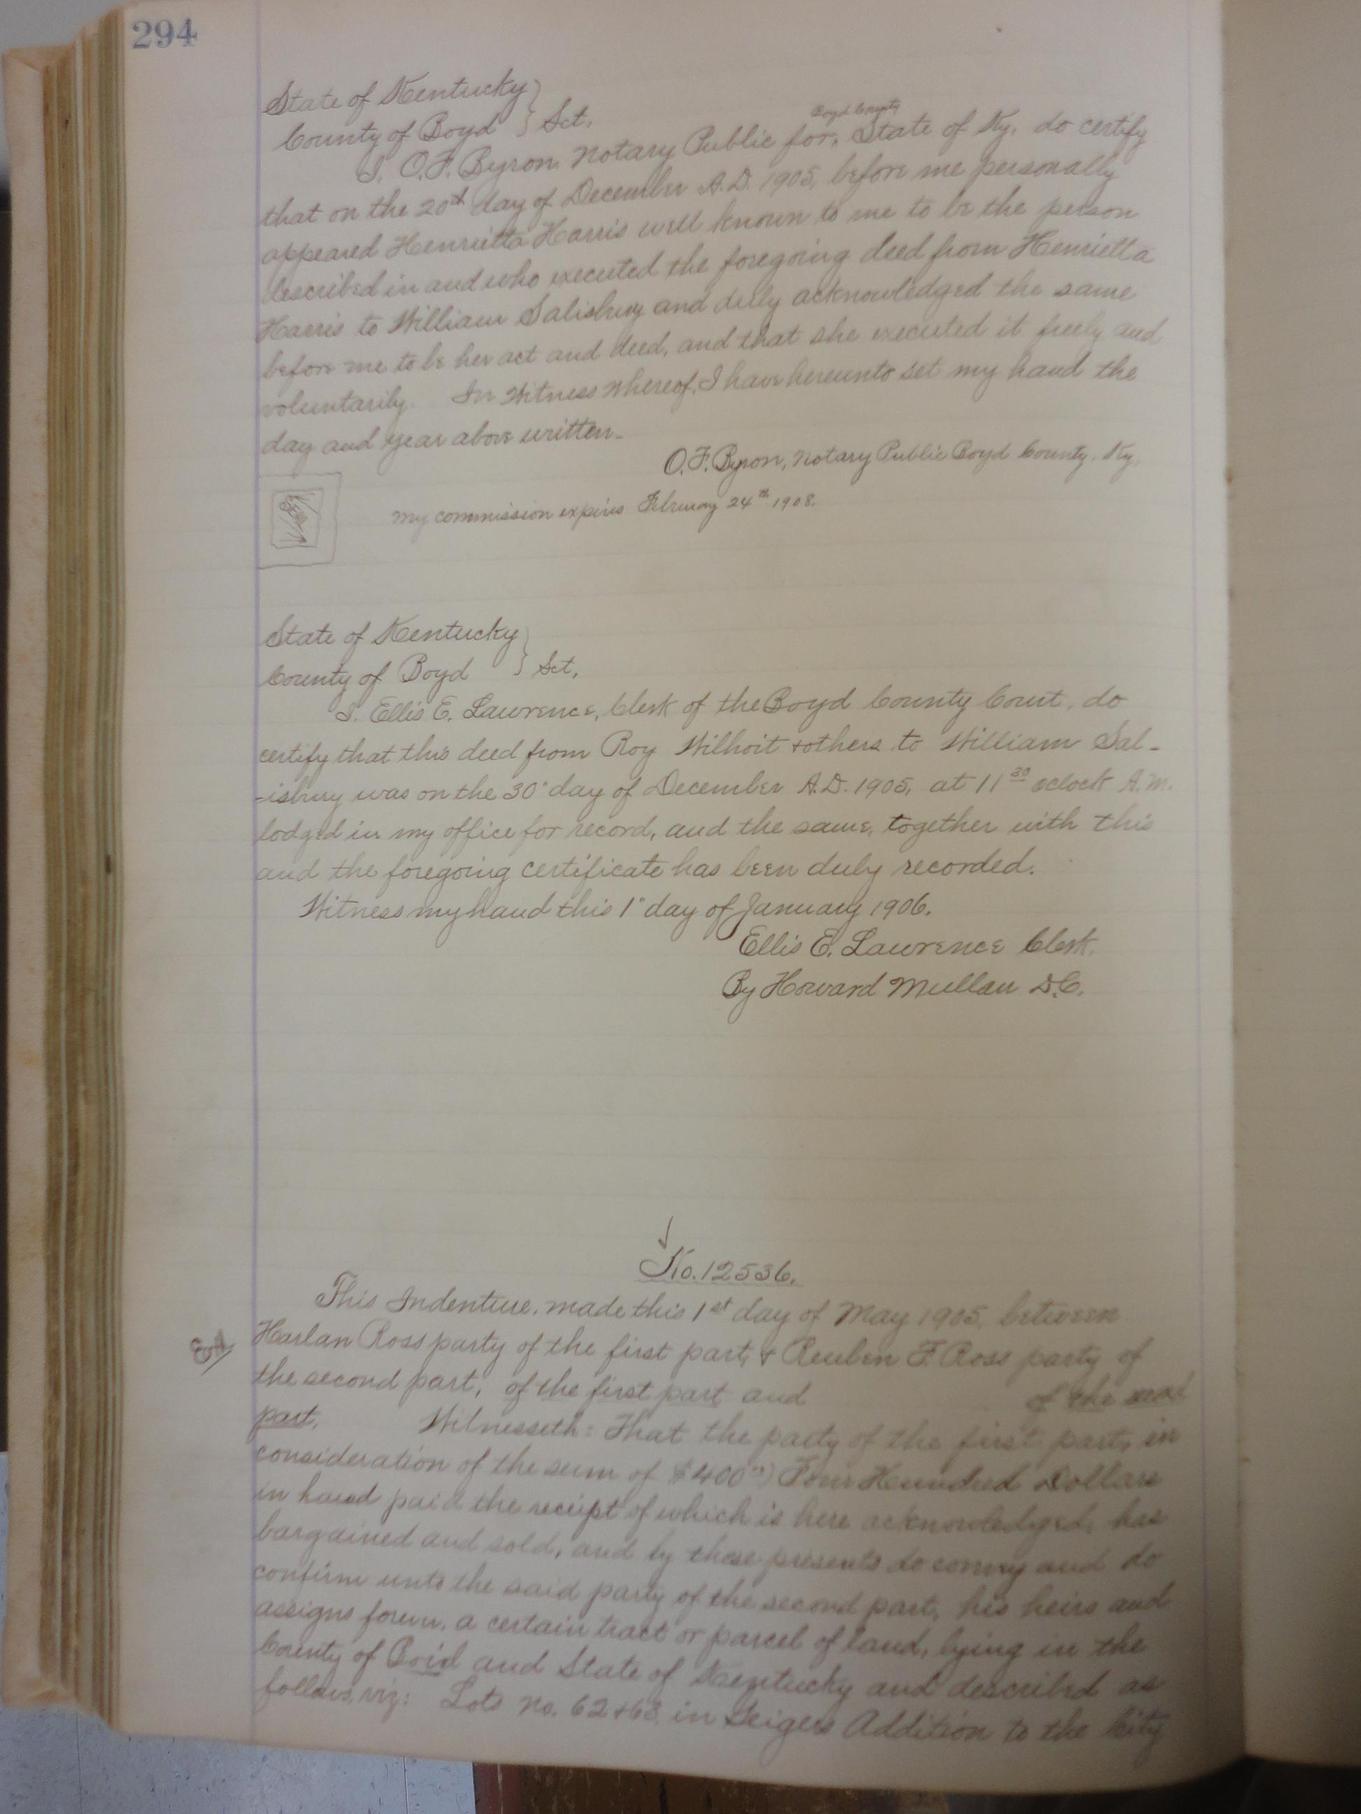 294
State of Kentucky }
County of Boyd } Sct.
Boyd County
I, O.F. Byron, Notary Public for, State of Ky. do certify
that on the 20th day of December A.D. 1905, before me personally
appeared Henrietta Harris well known to me to be the person
described in and who executed the foregoing deed from Henrietta
Harris to William Salisbury and duly acknowledged the same
before me to be her act and deed, and that she executed it freely and
voluntarily. In Witness Whereof, I have hereunto set my hand the
day and year above written.
O.F. Byron, Notary Public Boyd County, Ky.
My commission expires February 24th 1908.
State of Kentucky }
County of Boyd } Sct,
I, Ellis E. Lawrence, Clerk of the Boyd County Court, do
certify that this deed from Roy Wilhoit & others to William Sal-
-isbury was on the 30" day of December A.D. 1905, at 11 30 oclock A.M.
lodged in my office for record, and the same, together with this
and the foregoing certificate has been duly recorded.
Witness my hand this 1" day of January 1906.
Ellis E. Lawrence Clerk.
By Howard Mullan D.C.
No. 12536.
This Indenture, made this 1st day of May 1905, between
Harlan Ross party of the first part, & Reuben F. Ross party of
the second part, of the first part and of the second
part, Witnesseth: That the party of the first part, in
consideration of the sum of $400 Four Hundred Dollars
in hand paid the receipt of which is here acknowledged, has
bargained and sold, and by these presents do convey and do
confirm unto the said party of the second part, his heirs and
assigns forever, a certain tract or parcel of land, lying in the
County of Boid and State of Kentucky and described as
follows, viz: Lots No. 62 & 63 in Geigers Addition to the City